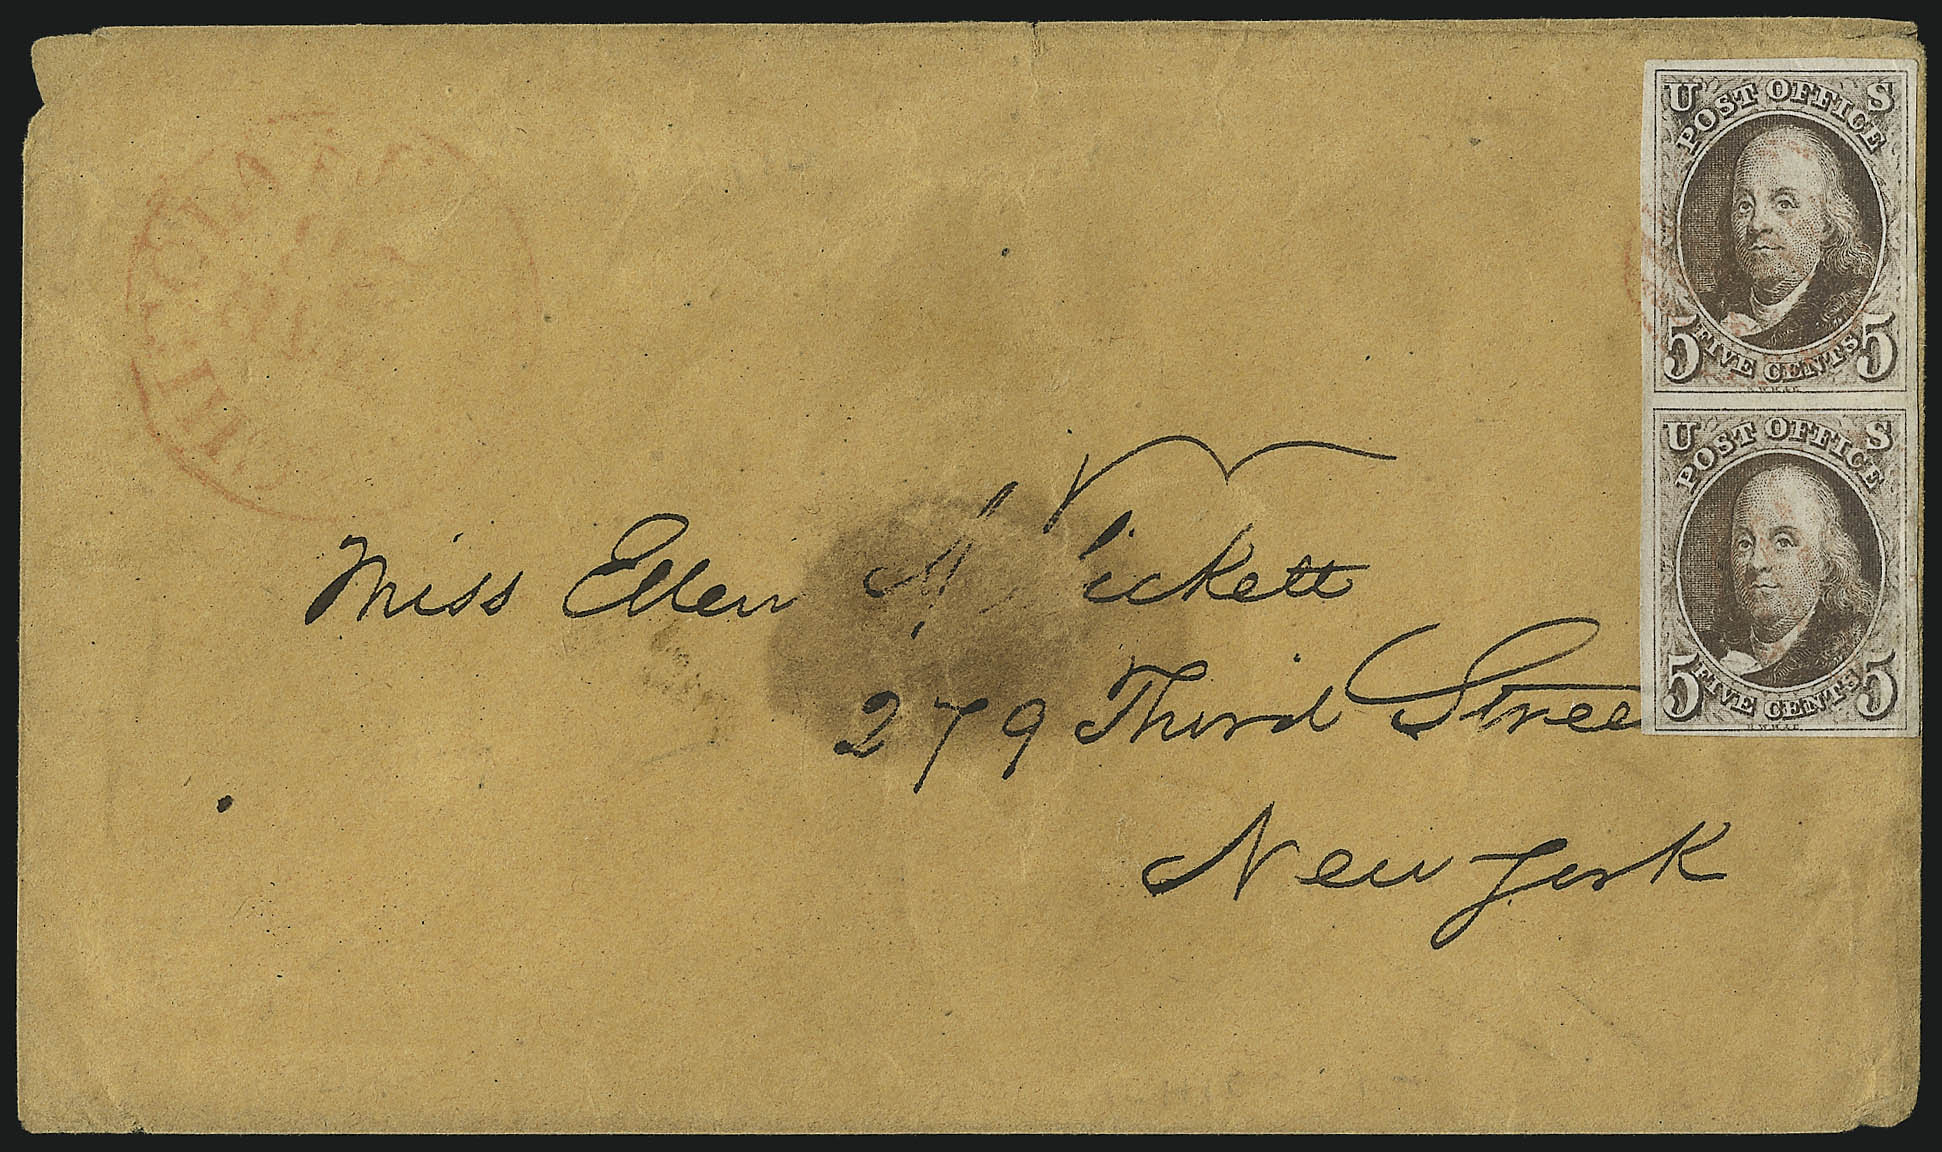 CHICAGO Ill.
18
U S
POST OFFICE
5 FIVE CENTS 5
U S
POST OFFICE
5 FIVE CENTS 5
Miss Ellen M Pickett
279 Third Stree
New York